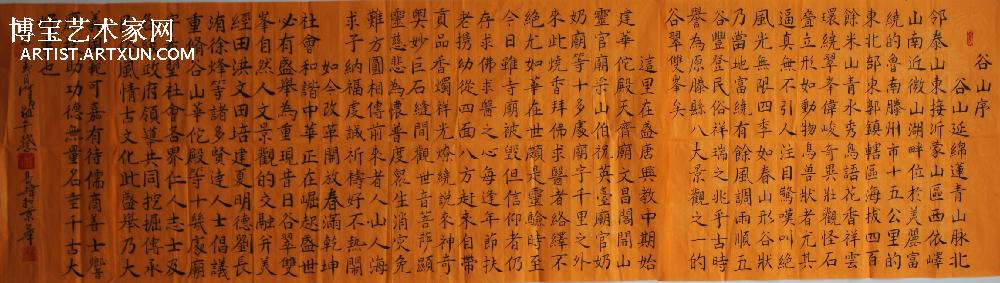 博宝艺术家网
ARTIST.ARTXUN.COM
谷山序
谷山延綿連青山脉北
邻泰山東接沂蒙山區西依嶧
山南近微山湖畔位於美麗富
饒的魯南滕州市十五公里的
東北部東郭鎮轄區海拔四百
餘米山青水秀鳥語花香祥雲
環繞翠峯偉峻奇異壯觀怪石
叠立形如動物鳥獸狀者尤其
逼真無不引人注目驚嘆叫絕
風光無限四季如春山形谷狀
乃當地富饒有餘風調雨順五
谷豐登民俗吉祥瑞之兆乎古時
譽為原滕縣八大景觀之一的
谷翠雙峯矣
這里在盛唐興教中期始
建華佗殿天齊廟文昌閣閻山
靈官廟梁山伯祝英臺廟官奶
奶廟等十多處廟宇千里之外
來此燒香拜佛求醫者絡繹不
絕尤如華佗在世頗是靈驗時至
今日雖寺廟被毁但信仰者仍
存求佛求醫之心每逢年節扶
老携幼從四面八方赶来自帶
貢品香燭祥光燎繞說來神奇
輿妙巨石縫間觀世音菩薩顯
靈慈悲為懷普度衆生消灾免
難方圓相傳前來者人山人海
求子納福度誠祈禱好不热鬧
如今改革開放春滿乾坤
社會和諧中華正在崛起盛世
必有盛舉為重現昔日谷翠雙
峯自然人文景觀的交融升美
經田洪文田培建夏明德劉長
洧徐烽等諸多賢达人士倡議
重脩谷山華佗殿等十幾處廟
望社會各界仁人志士及
政府領導共同挖掘傳承
風情古文化此盛舉乃大
範可嘉有待儒商善士響
助功德無量名垂千古大
也